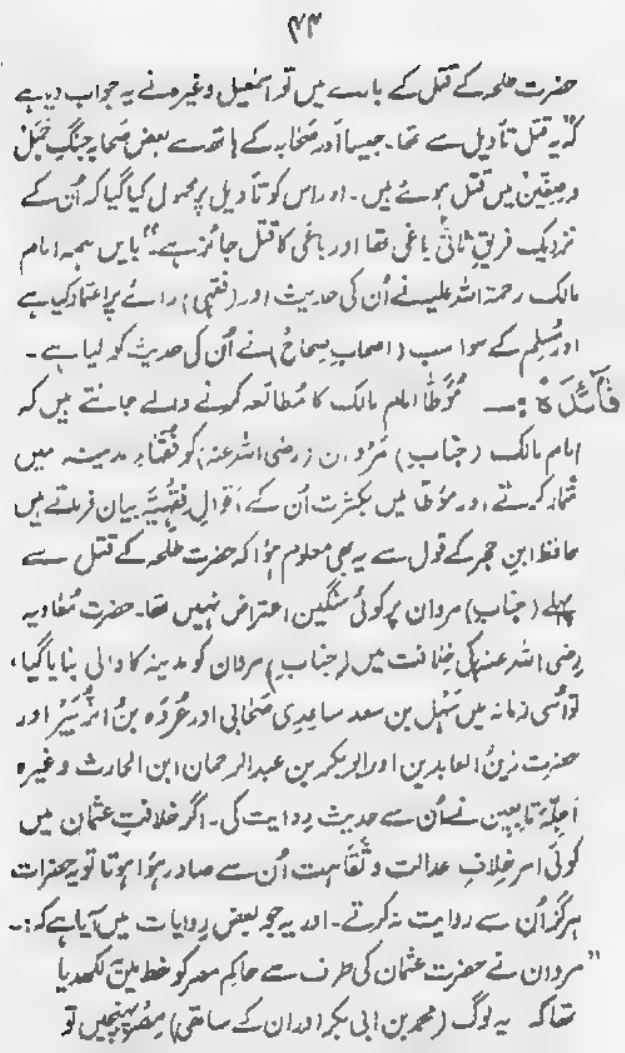 ۴۳
حضرت طلحہ کے قتل کے بارے میں تو اسمٰعیل وغیرہ نے یہ جواب دیا ہے
کہ "یہ قتل تأویل سے تھا۔ جیسا اَور صَحابہ کے ہاتھ سے بعض صَحابہ جنگِ جَمَل
و صِفّین میں قتل ہوئے ہیں۔ اور اس کو تأویل پر محمول کیا گیا کہ اُن کے
نزدیک فریقِ ثانی باغی تھا اور باغی کا قتل جائز ہے۔" بایں ہمہ امام
مالک رحمۃ اللہ علیہ نے اُن کی حدیث اور (فقہی) رائے پر اعتماد کیا ہے
اور مُسلِم کے سوا سب (اصحابِ صِحاح) نے اُن کی حدیث کو لیا ہے۔
فَائِدَہ :— مُؤطّا امام مالک کا مُطالعہ کرنے والے جانتے ہیں کہ
امام مالک (جنابِ) مَرْوان (رضی اللہ عنہ) کو فقہاءِ مدینہ میں
شمار کرتے اور مؤطّا میں بکثرت اُن کے اَقوالِ فِقہیّہ بیان فرماتے ہیں
حافظ ابنِ حجر کے قول سے یہ بھی معلوم ہؤا کہ حضرت طلحہ کے قتل سے
پہلے (جنابِ) مروان پر کوئی سنگین اعتراض نہیں تھا۔ حضرت مُعَاویہ
رضی اللہ عنہ کی خِلافت میں (جنابِ) مروان کو مدینہ کا والی بنایا گیا،
تو اُسی زمانہ میں سَہْل بن سعد ساعِدِی صَحابی اور عُرْوَہ بنُ الزُّبَیْرؓ اور
حضرت زینُ العابدین اور ابوبکر بن عبدالرحمان ابن الحارث وغیرہ
اَجِلّہ تابِعین نے اُن سے حدیث رِوایت کی۔ اگر خلافتِ عثمان میں
کوئی امر خِلافِ عدالت و ثَقَاہت اُن سے صادر ہؤا ہوتا تو یہ حضرات
ہرگز اُن سے روایت نہ کرتے۔ اور یہ جو بعض رِوایات میں آیا ہے کہ :۔
"مروان نے حضرت عثمان کی طرف سے حاکمِ مصر کو خط میں لکھ دیا
تھا کہ یہ لوگ (محمد بن ابی بکر اور ان کے ساتھی) مِصْر پہنچیں تو